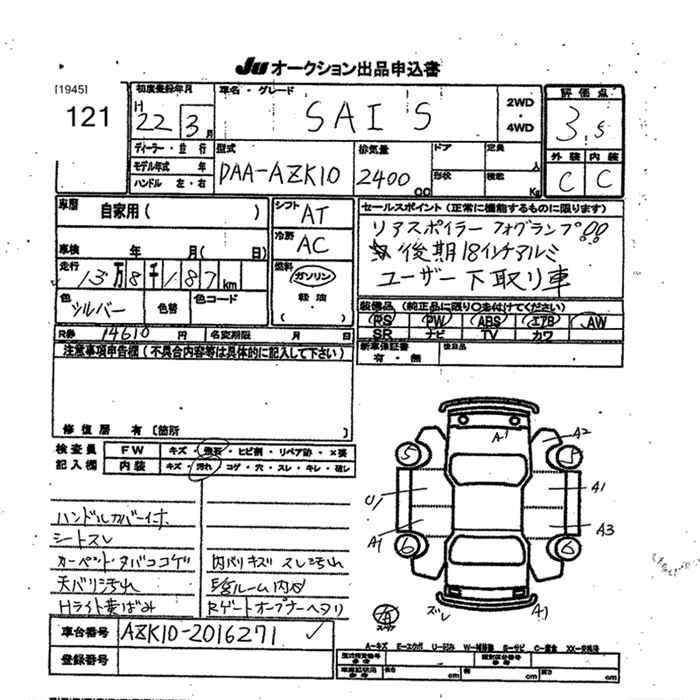 JU オークション出品申込書
[1945]
121
初度登録年月
H 22 3月
車名・グレード
SAI S
2WD
・
4WD
評価点
3.5
外装 内装
C C
ディーラー・並行
モデル年式 年
ハンドル 左・右
型式
DAA-AZK10
排気量
2400 CC
ドア
形状
定員 人
積載 Kg
車歴
自家用( )
車検 年 月( 日)
走行
13万8千187km
色
シルバー
色替
色コード
シフト
AT
冷房
AC
燃料
ガソリン
軽油・
( )
セールスポイント (正常に機能するものに限ります)
リアスポイラー フォグランプ!!
後期18インチアルミ
ユーザー下取り車
装備品 (純正品に限り○を付けてください)
PS PW ABS エアB AW
SR ナビ TV カワ
新車保証書
有・無
後日品
R券 14610円
名変期限 月 日
注意事項申告欄 (不具合内容等は具体的に記入して下さい)
修復歴 有〔箇所 〕
検査員
記入欄
FW
キズ・飛石・ヒビ割・リペア跡・×要
内装
キズ・汚れ・コゲ・穴・スレ・キレ・破レ
ハンドルカバー付
シートスレ
カーペットタバココゲ
天バリ汚れ
Hライト黄ばみ
内バリキズ スレ汚れ
Rゲートオープナーヘタリ
A1
A2
5
5
U1
A1
A1
A3
6
6
ズレ
A1
A
スペア
車台番号
AZK10-2016271
登録番号
A-キズ E-エクボ U-凹み W-補修跡 S-サビ C-腐食 XX-交換済
長さ cm
幅 cm
高さ cm